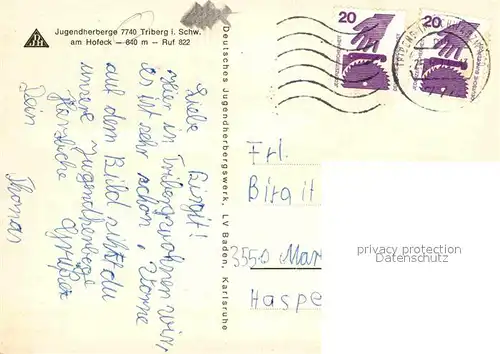 Jugendherberge 7740 Triberg i. Schw.
am Hofeck — 640 m — Ruf 822
Liebe Birgit!
Hier in Triberg wohnen wir,
es ist sehr schön. Vorne
auf dem Bild siehst du
unsere Jugendherberge
Herzliche Grüße
Dein Thomas
Deutsches Jugendherbergswerk, LV Baden, Karlsruhe
20
20
Frl.
Birgit
3550 Mar
Haspe
privacy protection
Datenschutz